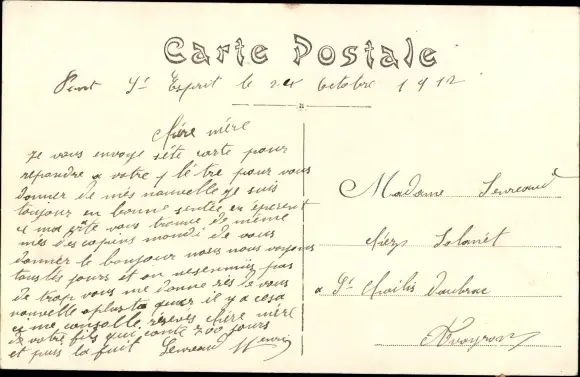 Carte Postale
Pont St Esprit le 2 Octobre 1912
Chère mère
Je vous envoye sète carte pour
répondre a votre lètre pour vous
donner de més nouvelle je suis
toujour en bonne santée en éspérent
que ma vous trouve de même
més des copins mondi de vous
donner le bonjour nous nous voyons
tous lés jours et on nesennuis pas
de trop vous me donnerés de vous
nouvelle oplusto quar il y a cesa
que me consolle resevés chère mère
de votre fils qui conte 700 jours
et puis la fuit Henri
Madame
chéz
a St Chélis Daubrac
Aveyron